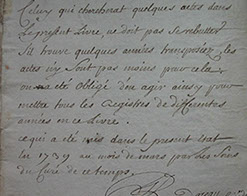 Ceux qui cherchent quelques actes dans
Le present Livre ne doit pas se rebutter
Sil trouve quelques années transposées, les
actes ny Sont pas moins pour cela
on a eté Obligé d'en agir ainsy pour
mettre tous les Registres de differentes
années en ce Livre.
ce qui a été mis dans le present état
en 1739 au mois de mars par les Soins
du Curé de ce temps.